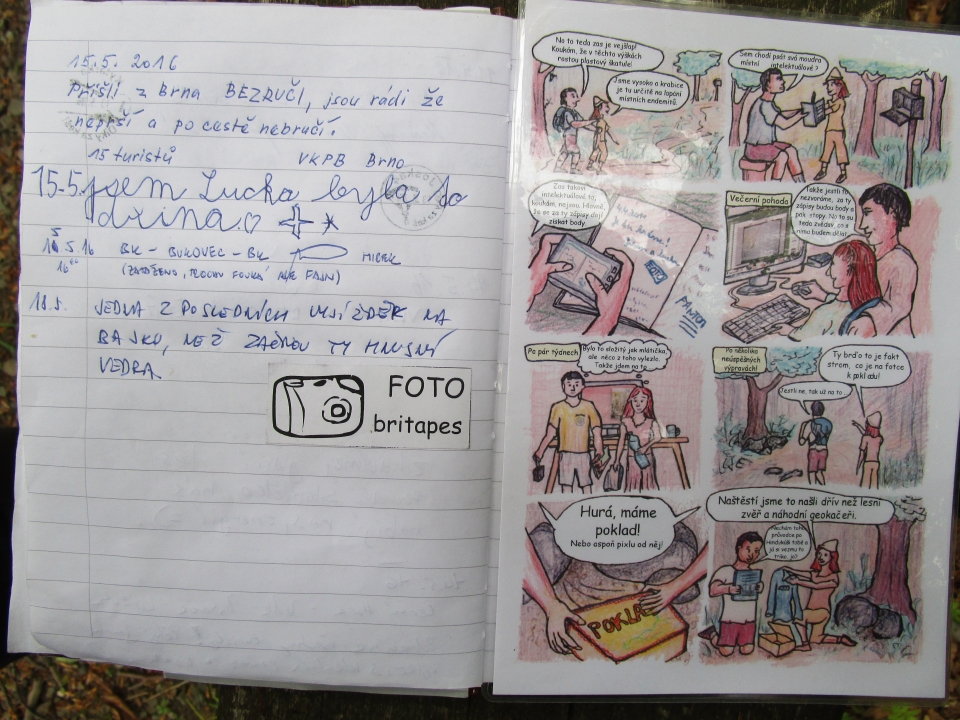 15.5. 2016
Přišli z Brna BEZRUČI, jsou rádi že
neprší a po cestě nebručí.
15 turistů VKPB Brno
15.5. jsem Lucka byla to
dřina
BK - BUKOVEC - BK
18.5. JEDNA Z POSLEDNÍCH VYJÍŽDĚK NA
BAJKU, NEŽ ZAČNOU TY HNUSNÝ
VEDRA
FOTO
britapes
No to teda zas je vejšlap!
Koukám, že v těchto výškách
rostou plastový škatule!
Jsme vysoko a krabice
je tu určitě na lapání
místních endemitů.
Sem chodí psát svá moudra
místní intelektuálové?
Zas takoví
intelektuálové to,
koukám, nejsou. Hlavně,
že se za ty zápisy dají
získat body.
PANTON
Večerní pohoda
Takže jestli to
nezvoráme, za ty
zápisy budou body a
pak stopy. No to su
teda zvědav, co s
nima budem dělat.
Po pár týdnech
Bylo to složitý jak mlátička,
ale něco z toho vylezlo.
Takže jdem na to.
Po několika
neúspěšných
výpravách!
Ty brďo to je fakt
strom, co je na fotce
k pokladu!
Jestli ne, tak už na to
Hurá, máme
poklad!
Nebo aspoň pixlu od něj!
POKLAD
Naštěstí jsme to našli dřív než lesní
zvěř a náhodní geokačeři.
Nechám toho
průvodce po
Hindúkúši tobě a
já si vezmu to
triko, jo?